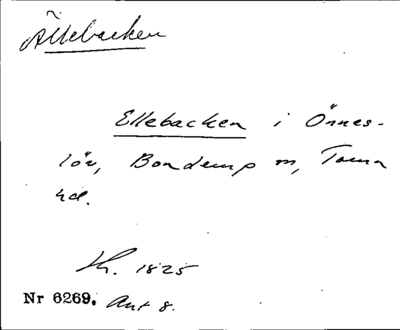 Ällebacken
Ellebacken i Önnes-
löv, Bondemp m, Torna
hd.
Kr. 1825
Nr 6269. Ant 8.